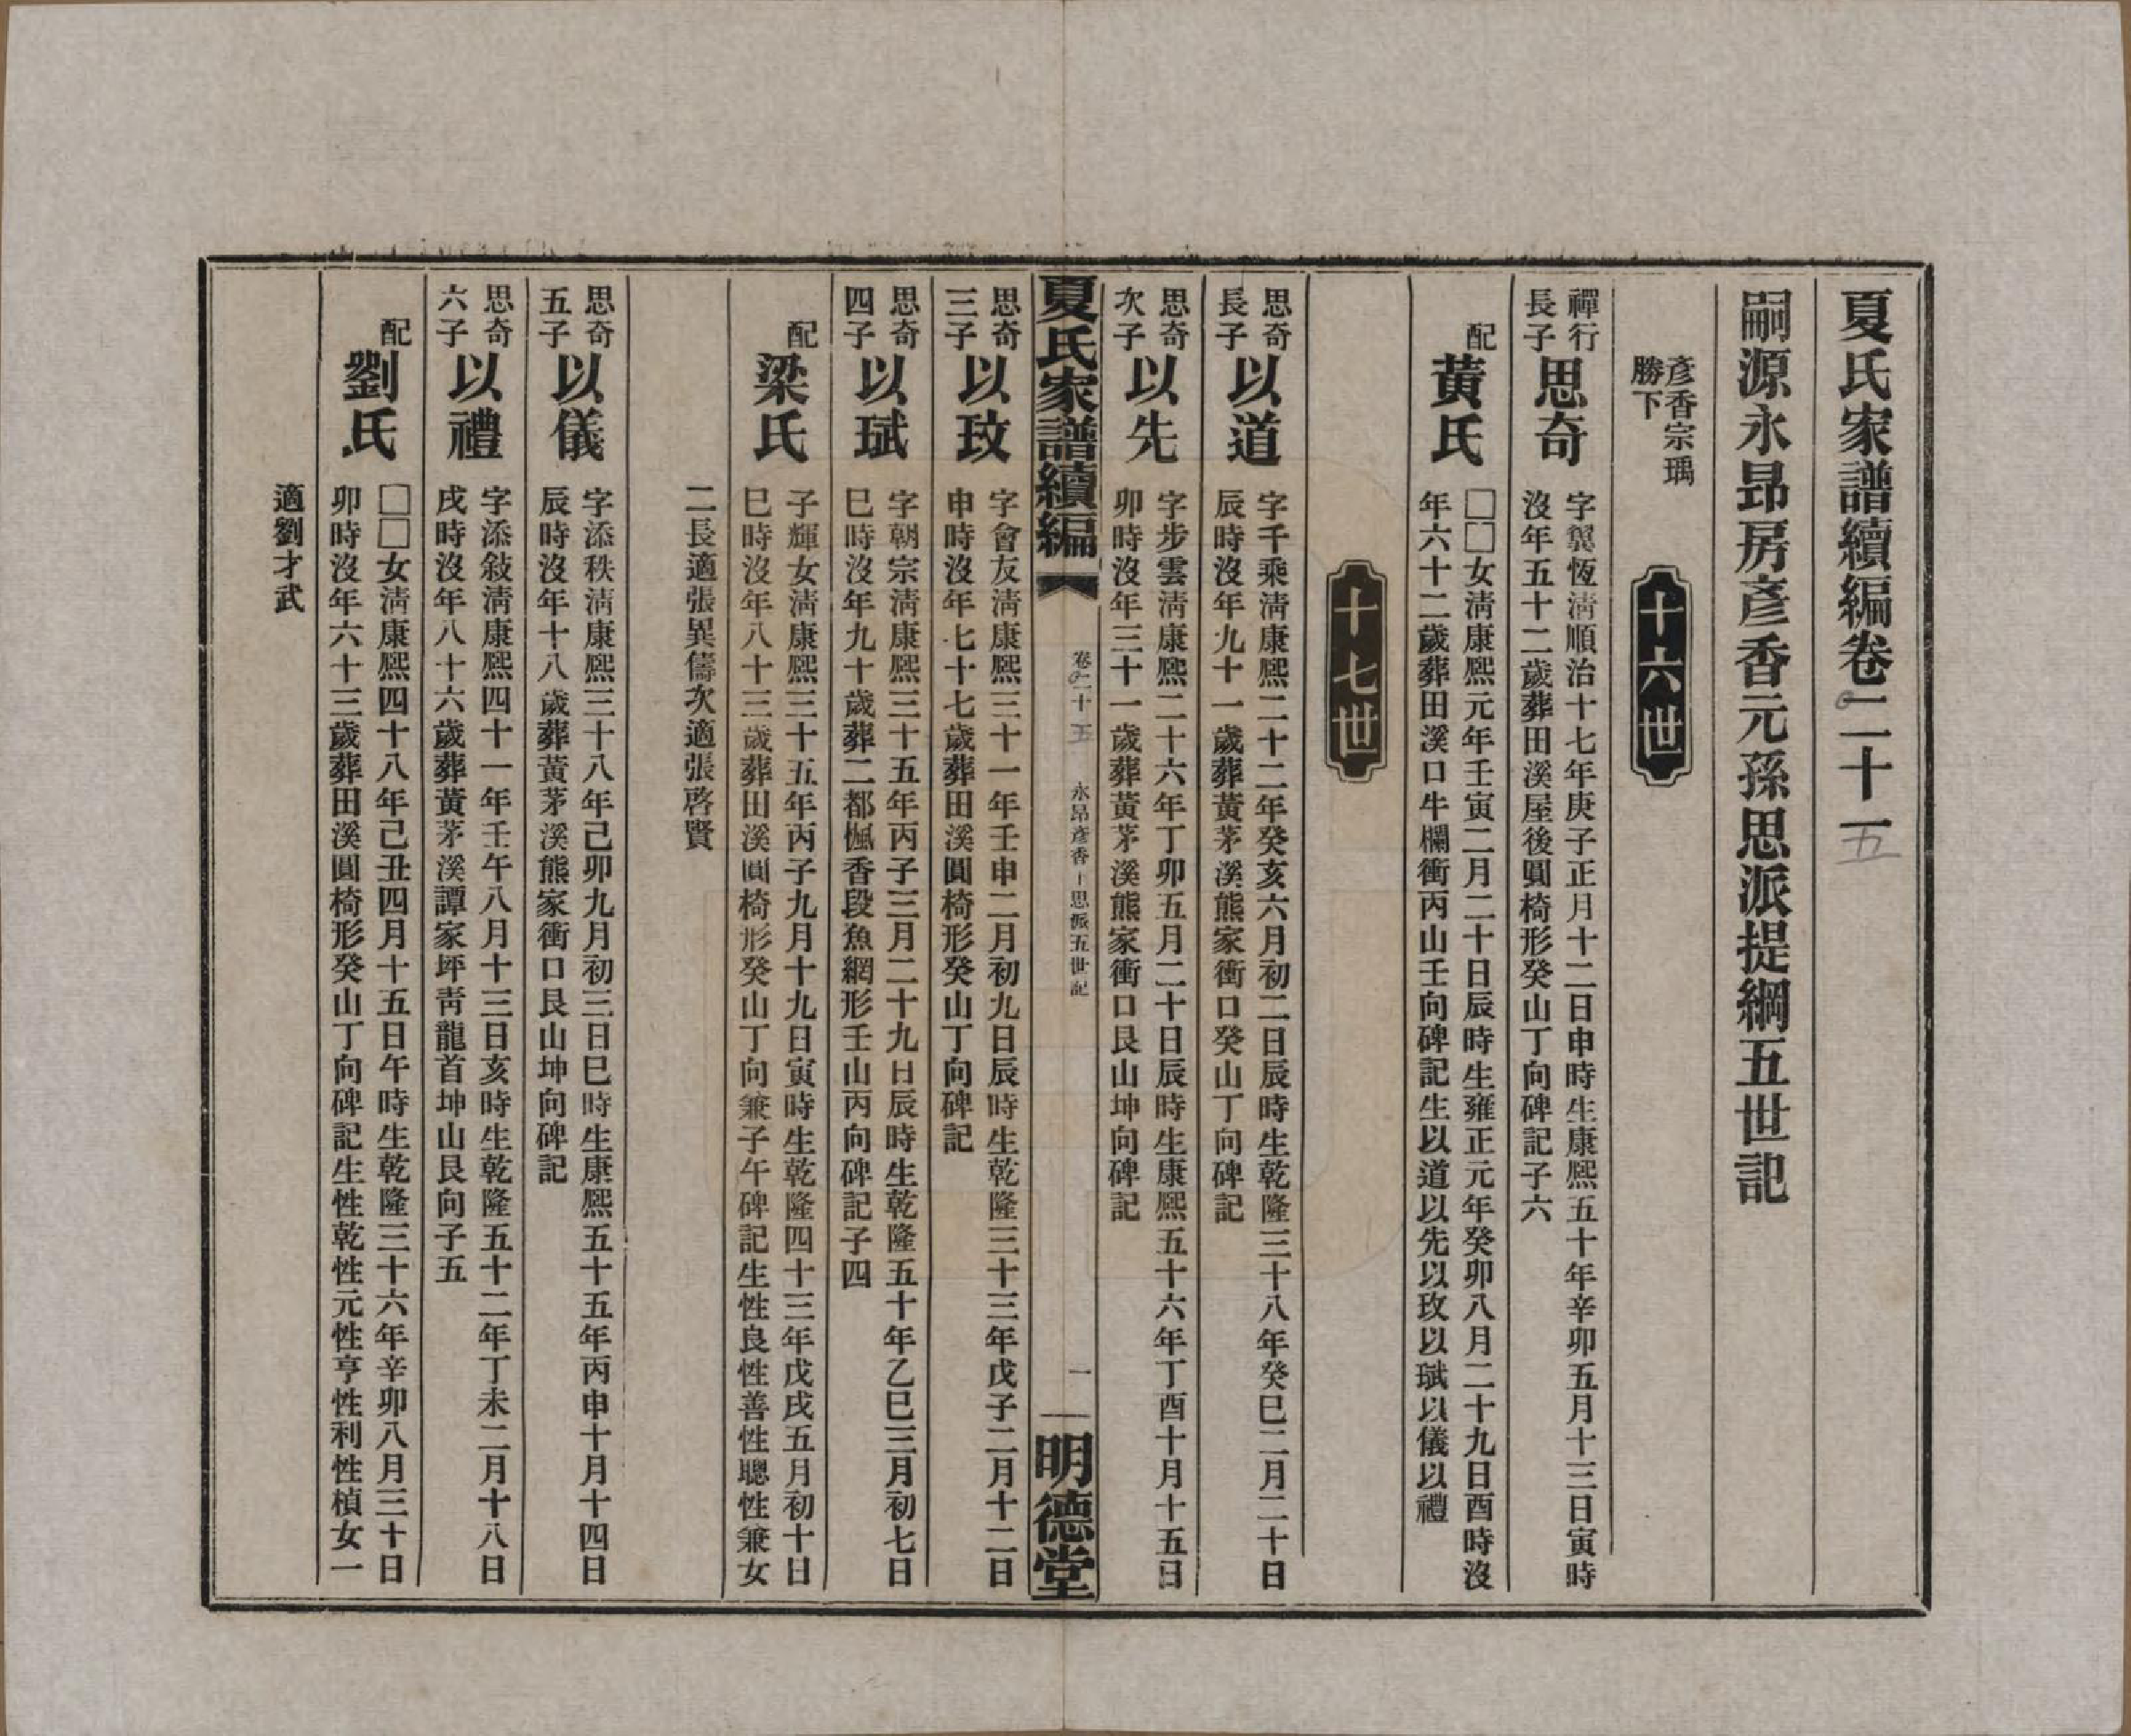 夏氏家譜續編卷二十一
五
嗣源永昻房彥香元孫思派提綱五世記
彥香宗瑀
勝下
十六世
禪行
長子
思奇
字翼恆淸順治十七年庚子正月十二日申時生康熙五十年辛卯五月十三日寅時
沒年五十二歲葬田溪屋後圓椅形癸山丁向碑記子六
配
黃氏
□□女淸康熙元年壬寅二月二十日辰時生雍正元年癸卯八月二十九日酉時沒
年六十二歲葬田溪口牛欄衝丙山壬向碑記生以道以先以玫以珷以儀以禮
十七世
思奇
長子
以道
字千乘淸康熙二十二年癸亥六月初二日辰時生乾隆三十八年癸巳二月二十日
辰時沒年九十一歲葬黃茅溪熊家衝口癸山丁向碑記
思奇
次子
以先
字步雲淸康熙二十六年丁卯五月二十日辰時生康熙五十六年丁酉十月十五日
卯時沒年三十一歲葬黃茅溪熊家衝口艮山坤向碑記
夏氏家譜續編
卷二十五
永昻彥香1思派五世記
一
明德堂
思奇
三子
以玫
字會友淸康熙三十一年壬申二月初九日辰時生乾隆三十三年戊子二月十二日
申時沒年七十七歲葬田溪圓椅形癸山丁向碑記
思奇
四子
以珷
字朝宗淸康熙三十五年丙子三月二十九日辰時生乾隆五十年乙巳三月初七日
巳時沒年九十歲葬二都楓香段魚網形壬山丙向碑記子四
配
梁氏
子輝女淸康熙三十五年丙子九月十九日寅時生乾隆四十三年戊戌五月初十日
巳時沒年八十三歲葬田溪圓椅形癸山丁向兼子午碑記生性良性善性聰性兼女
二長適張異儔次適張啓賢
思奇
五子
以儀
字添秩淸康熙三十八年己卯九月初三日巳時生康熙五十五年丙申十月十四日
辰時沒年十八歲葬黃茅溪熊家衝口艮山坤向碑記
思奇
六子
以禮
字添敍淸康熙四十一年壬午八月十三日亥時生乾隆五十二年丁未二月十八日
戌時沒年八十六歲葬黃茅溪譚家坪靑龍首坤山艮向子五
配
劉氏
□□女淸康熙四十八年己丑四月十五日午時生乾隆三十六年辛卯八月三十日
卯時沒年六十三歲葬田溪圓椅形癸山丁向碑記生性乾性元性亨性利性楨女一
適劉才武